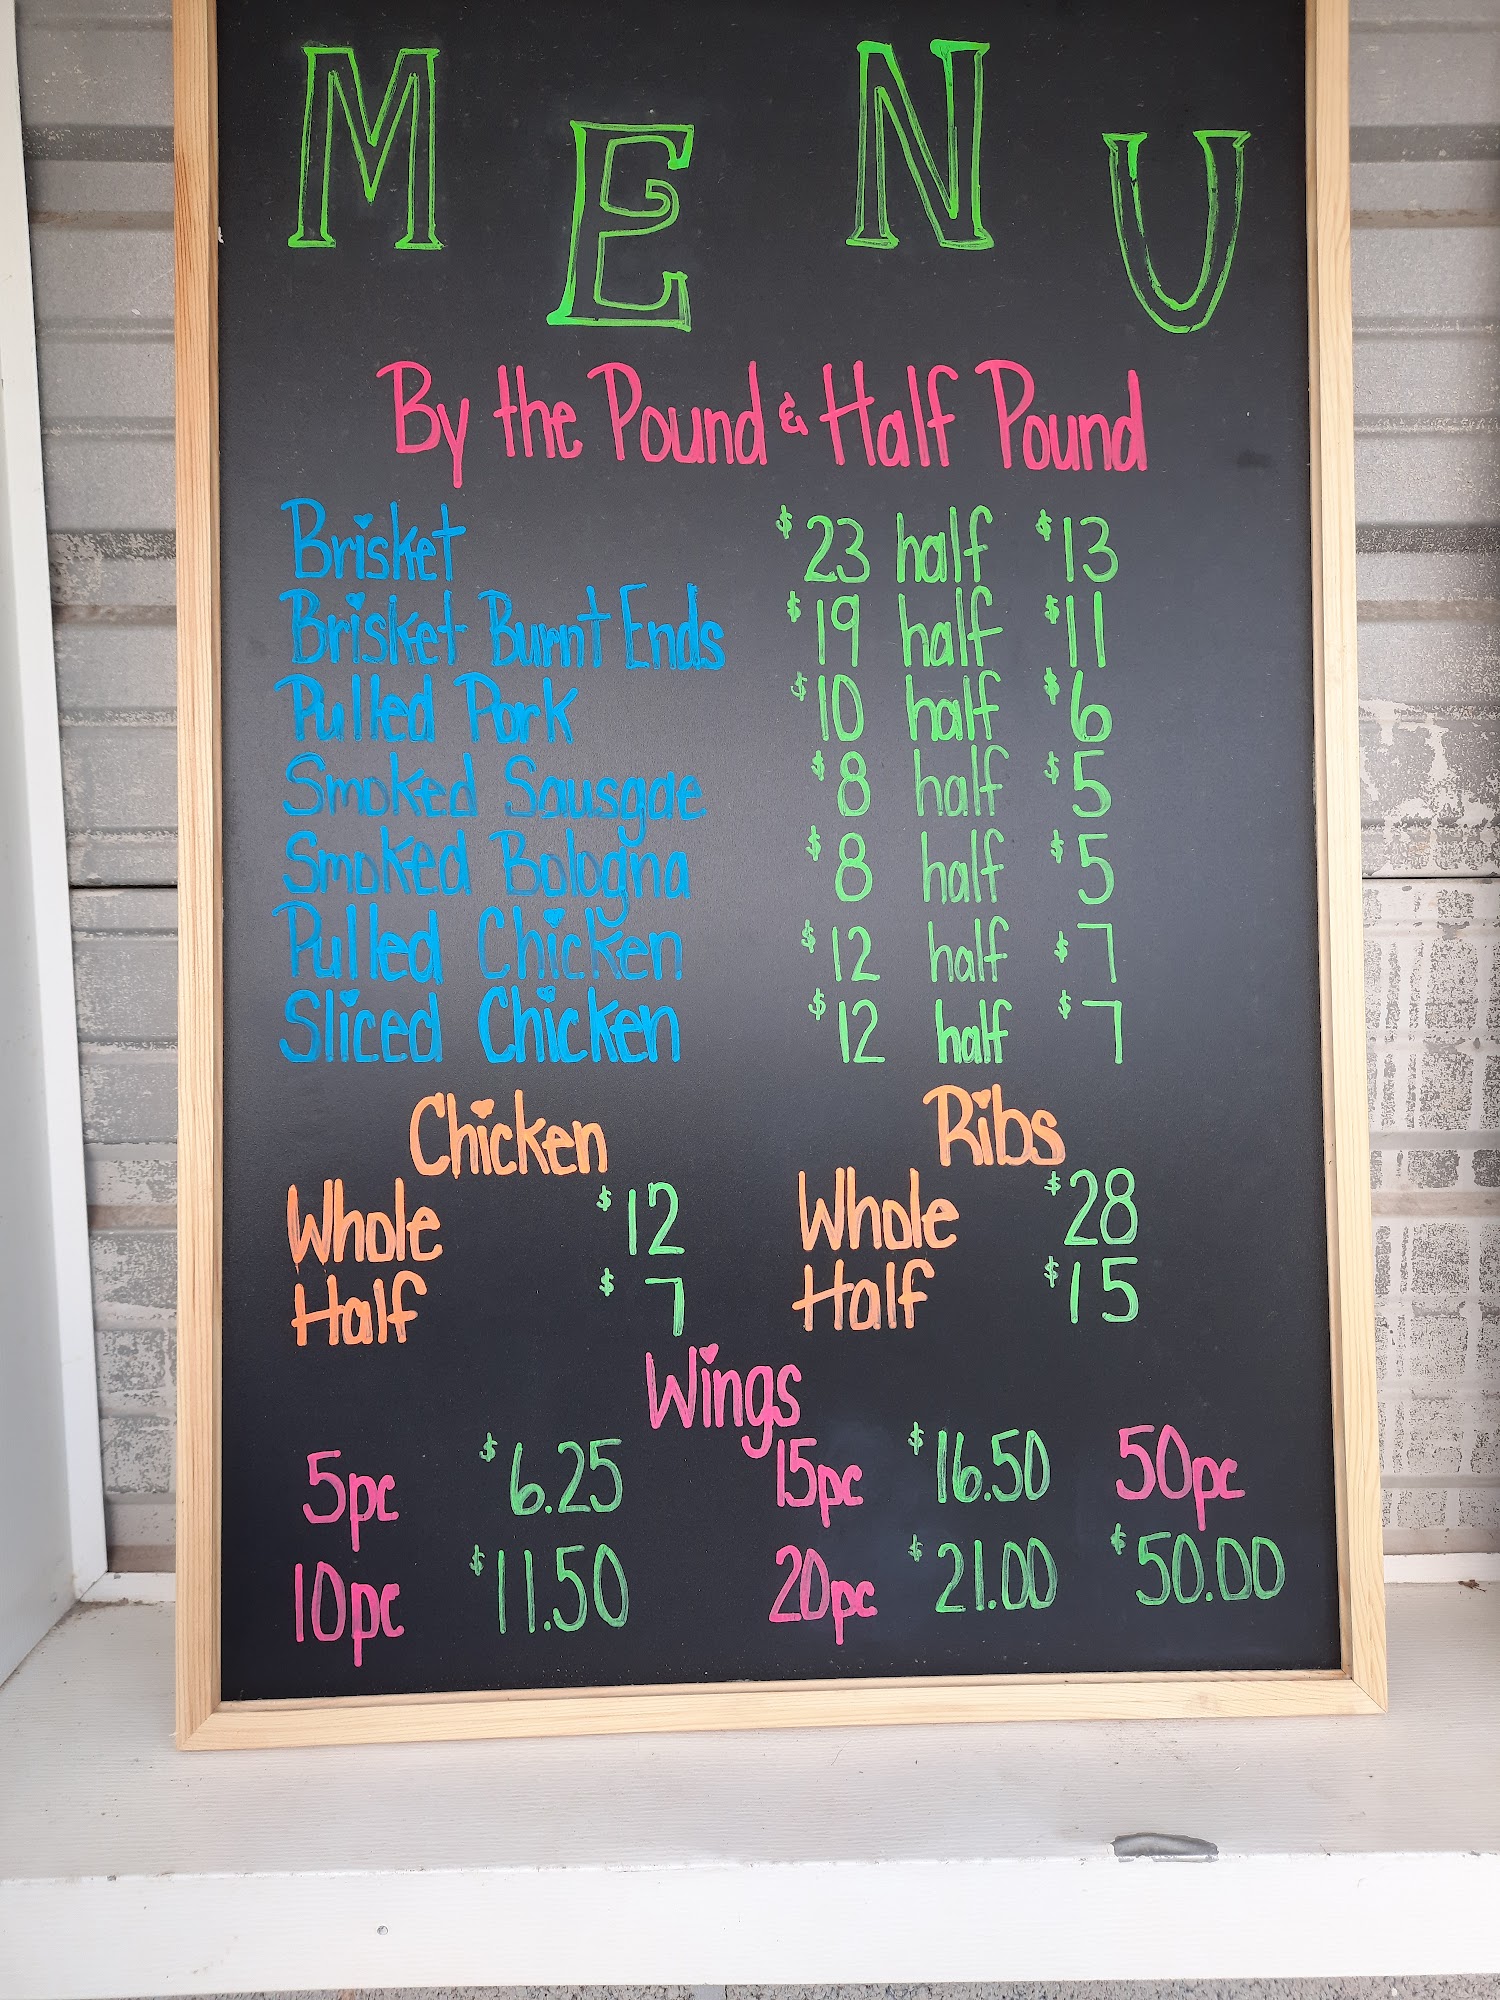 MENU
By the Pound & Half Pound
Brisket $23 half $13
Brisket Burnt Ends $19 half $11
Pulled Pork $10 half $6
Smoked Sausgae $8 half $5
Smoked Bologna $8 half $5
Pulled Chicken $12 half $7
Sliced Chicken $12 half $7
Chicken Ribs
Whole $12 Whole $28
Half $7 Half $15
Wings
5pc $6.25 15pc $16.50 50pc
10pc $11.50 20pc $21.00 $50.00